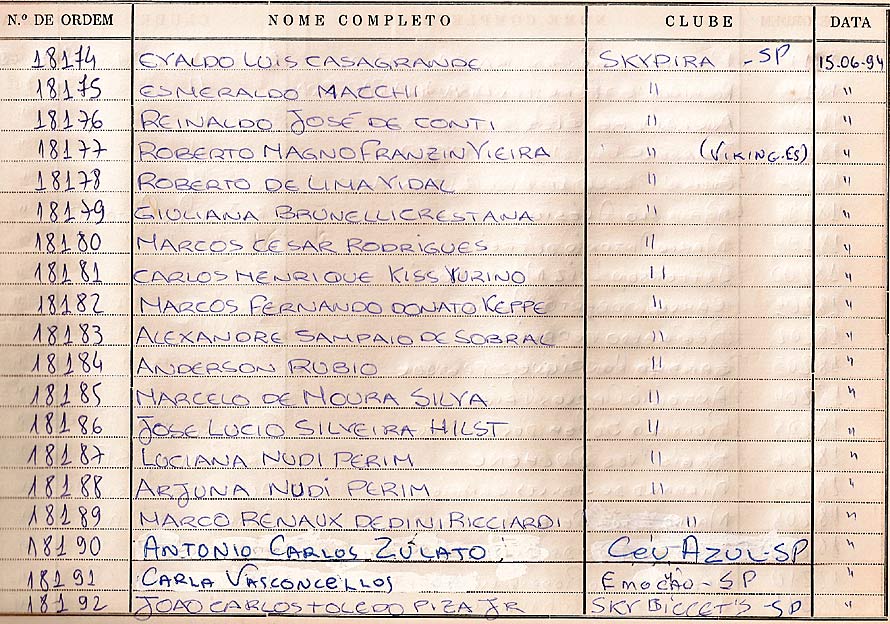 N.º DE ORDEM NOME COMPLETO CLUBE DATA
18174 EVALDO LUIS CASAGRANDE SKYPIRA - SP 15.06.94
18175 ESMERALDO MACCHI " "
18176 REINALDO JOSÉ DE CONTI " "
18177 ROBERTO MAGNO FRANZIN VIEIRA " (VIKING.ES) "
18178 ROBERTO DE LIMA VIDAL " "
18179 GIULIANA BRUNELLI CRESTANA " "
18180 MARCOS CESAR RODRIGUES " "
18181 CARLOS HENRIQUE KISS YURINO " "
18182 MARCOS FERNANDO DONATO KEPPE " "
18183 ALEXANDRE SAMPAIO DE SOBRAL " "
18184 ANDERSON RUBIO " "
18185 MARCELO DE MOURA SILVA " "
18186 JOSE LUCIO SILVEIRA HILST " "
18187 LUCIANA NUDI PERIM " "
18188 ARJUNA NUDI PERIM " "
18189 MARCO RENAUX DEDINI RICCIARDI " "
18190 ANTONIO CARLOS ZULATO CEU AZUL-SP "
18191 CARLA VASCONCELLOS EMOÇÃO - SP "
18192 JOAO CARLOS TOLEDO PIZA JR SKY BICCET'S - SP "